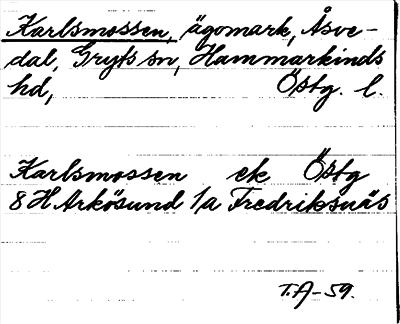 Karlsmossen, jägomark, Åsve-
dal, Gryts sn, Hammarkinds
hd, Östg. l.
Karlsmossen ek Östg
8 H Arkösund 1/a Fredriksnäs
T.A-59.